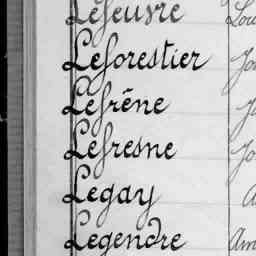 Lefeuvre Lou
Leforestier Jo
Lefrêne J
Lefresne Jo
Legay A
Legendre Am